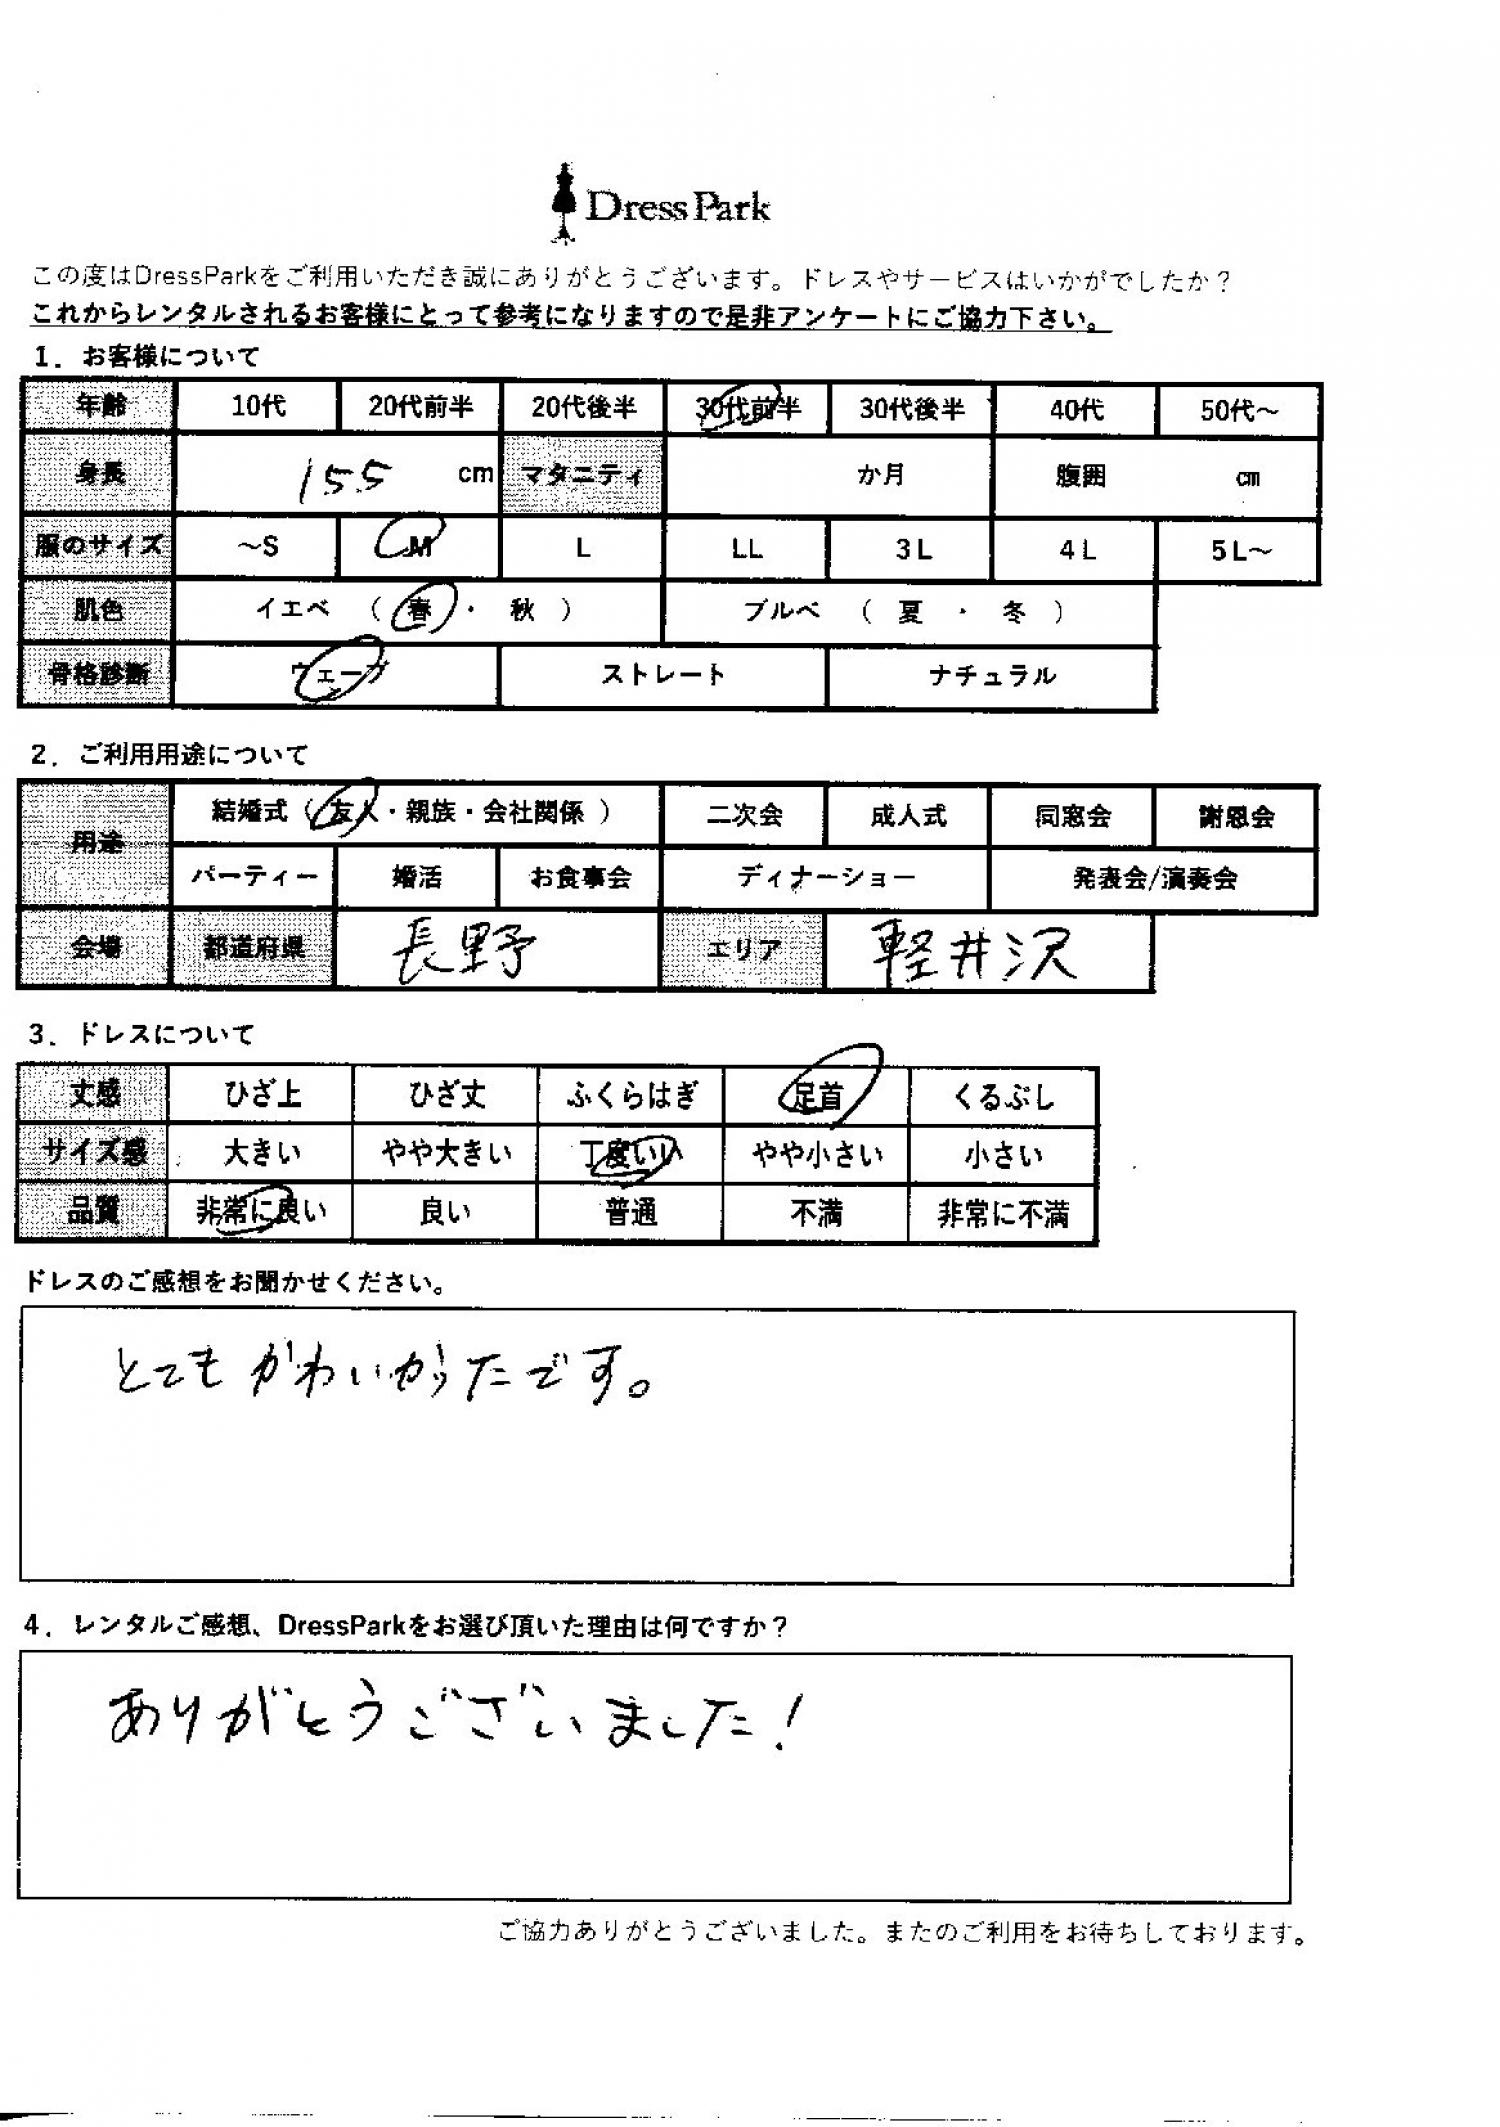 Dress Park
この度はDressParkをご利用いただき誠にありがとうございます。ドレスやサービスはいかがでしたか？
これからレンタルされるお客様にとって参考になりますので是非アンケートにご協力下さい。
1．お客様について
年齢 10代 20代前半 20代後半 30代前半 30代後半 40代 50代～
身長 155 cm マタニティ か月 腹囲 ㎝
服のサイズ ～S M L LL 3L 4L 5L～
肌色 イエベ （ 春 ・ 秋 ） ブルベ （ 夏 ・ 冬 ）
骨格診断 ウェーブ ストレート ナチュラル
2．ご利用用途について
用途 結婚式（ 友人・親族・会社関係 ） 二次会 成人式 同窓会 謝恩会
パーティー 婚活 お食事会 ディナーショー 発表会/演奏会
会場 都道府県 長野 エリア 軽井沢
3．ドレスについて
丈感 ひざ上 ひざ丈 ふくらはぎ 足首 くるぶし
サイズ感 大きい やや大きい 丁度いい やや小さい 小さい
品質 非常に良い 良い 普通 不満 非常に不満
ドレスのご感想をお聞かせください。
とてもかわいかったです。
4．レンタルご感想、DressParkをお選び頂いた理由は何ですか？
ありがとうございました！
ご協力ありがとうございました。またのご利用をお待ちしております。